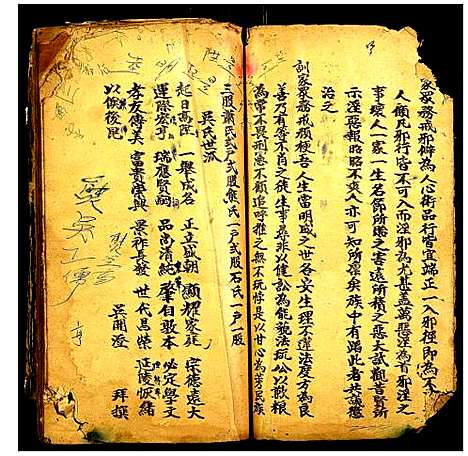 家眾務戒邪僻為人心術品行皆宜端正一入邪徑即為不
人願凡邪行皆不可入而淫邪為尤甚蓋萬惡淫為首邪淫之
事壞人一家一生名節所係之害遠所積之惡大試觀昔賢所
示淫惡報昭昭不爽人亦可知所深矣族中有蹈此者共議懲
治之
訓家眾務戒頑梗吾人生當明盛之世各妄生理不違法度方為良
善乃有等不肖之徒生事尋非以健訟為能藐法玩公以欺
為常不畏刑憲不顧追呼推之無不玩悖是以甘心為莠民
三股蕭氏式戶式股熊氏一戶式股石氏一戶一股
吳氏世派
起日高陞 一舉成名 正立盛朝 顯耀家庭 宗德遠大
運際宏亨 瑞應賢嗣 品尚清純 肇自敬本 必定學文
孝友傳美 富貴榮興 景祚長發 世代昌榮 延陵恢緒
以俟後昆
吳開澄 拜撰